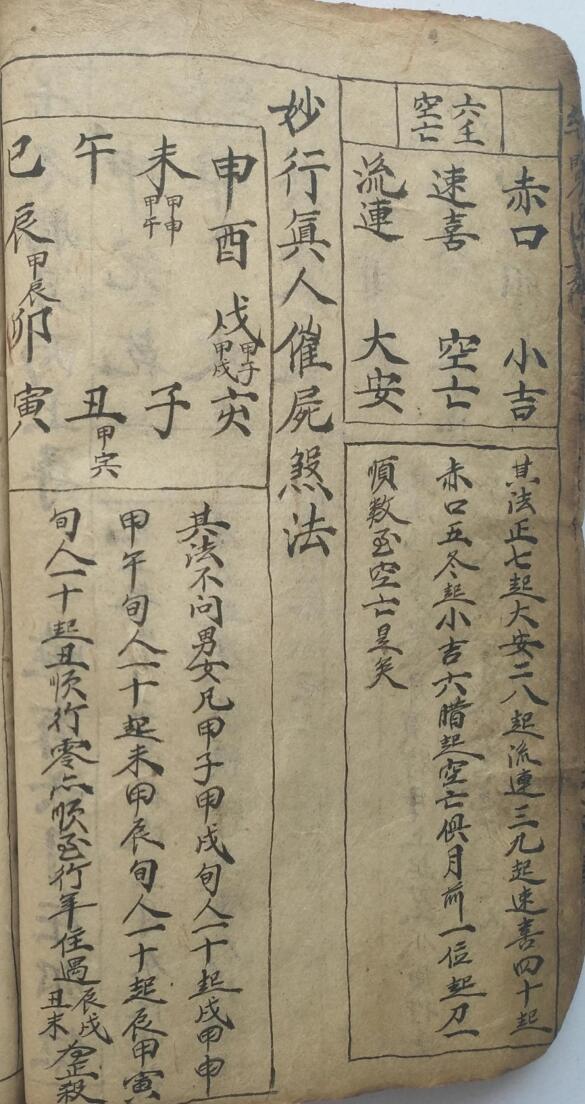 六壬
空亡
赤口 小吉
速喜 空亡
流連 大安
其法正七起大安二八起流連三九起速喜四十起
赤口五冬起小吉六腊起空亡俱月前一位起刀一
順数至空亡是矣
妙行眞人催屍煞法
申酉戌甲子甲戌亥
未甲申甲午 子
午 丑甲寅
巳辰甲辰卯寅
其法不问男女凡甲子甲戌旬人一十起戌甲申
甲午旬人一十起未甲辰旬人一十起辰甲寅
旬人一十起丑顺行零亦顺至行年住遇辰戌丑未為正殺